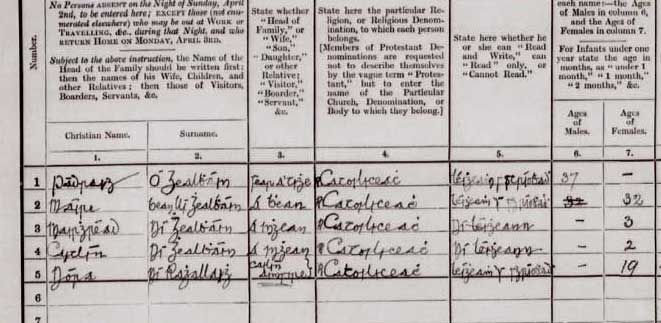 Number.
No Persons ABSENT on the Night of Sunday, April
2nd, to be entered here; EXCEPT those (not enu-
merated elsewhere) who may be out at WORK or
TRAVELLING, &c., during that Night, and who
RETURN HOME ON MONDAY, APRIL 3RD.
Subject to the above instruction, the Name of the
Head of the Family should be written first;
then the names of his Wife, Children, and
other Relatives; then those of Visitors,
Boarders, Servants, &c.
Christian Name.
Surname.
1.
2.
State whether
"Head of
Family," or
"Wife,"
"Son,"
"Daughter,"
or other
Relative;
"Visitor,"
"Boarder,"
"Servant,"
&c.
3.
State here the particular Re-
ligion, or Religious Denom-
ination, to which each person
belongs.
[Members of Protestant De-
nominations are requested
not to describe themselves
by the vague term "Protes-
tant," but to enter the
name of the Particular
Church, Denomination, or
Body to which they belong.]
4.
State here whether he
or she can "Read
and Write," can
"Read" only, or
"Cannot Read."
5.
each name:—the Ages
of Males in column 6,
and the Ages of
Females in column 7.
For Infants under one
year state the age in
months, as "under 1
month," "1 month,"
"2 months," &c.
Ages
of
Males.
6.
Ages
of
Females.
7.
1 Pádraig Ó Gealbáin Catoiliceaċ 37 –
2 Máire bean Uí Gealbáin A bean Catoiliceaċ 32
3 Mairgréad Ní Gealbáin A inġean Catoiliceaċ Ní léiġeann – 3
4 Ní Gealbáin A inġean Catoiliceaċ Ní léiġeann – 2
5 Nóra Ní Raġallaiġ Cailín aimsire Catoiliceaċ – 19
6
7